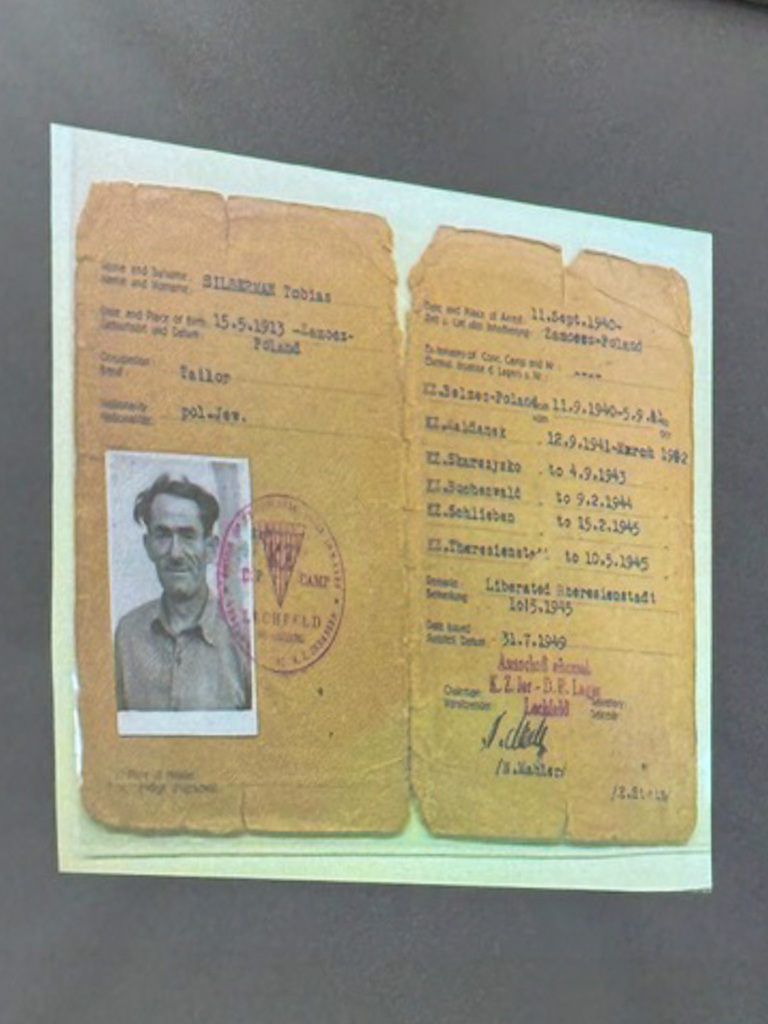 Name and Surname: SILBERMAN Tobias
Name und Vorname:
Date and Place of Birth: 15.5.1913 -Zamosz-
Geburtsort und Datum: Poland
Occupation: Tailor
Beruf
Nationality pol.Jew.
Nationalität:
D.P CAMP
LECHFELD
Date and Place of Arrest: 11.Sept.1940-
Zeit u. Ort der Inhaftierung: Zamosz-Poland
Conc. Camp and Nr: ----
KZ.Belzec-Poland 11.9.1940-5.9.41
KZ.Maidanek . 12.9.1941-March 1942
KZ.Skarzysko . to 4.9.1943
KZ.Buchenwald to 9.2.1944
KZ.Schlieben to 15.2.1945
KZ.Theresienstadt to 10.5.1945
Remarks: Liberated Theresienstadt
Bemerkung: 10.5.1945
Date issued: 31.7.1949
Datum:
Ausschuß ehemal.
K.Z.ler - D.P. Lager
Lechfeld
Chairman: Secretary:
Vorsitzender: Sekretär:
/N.Mahler/